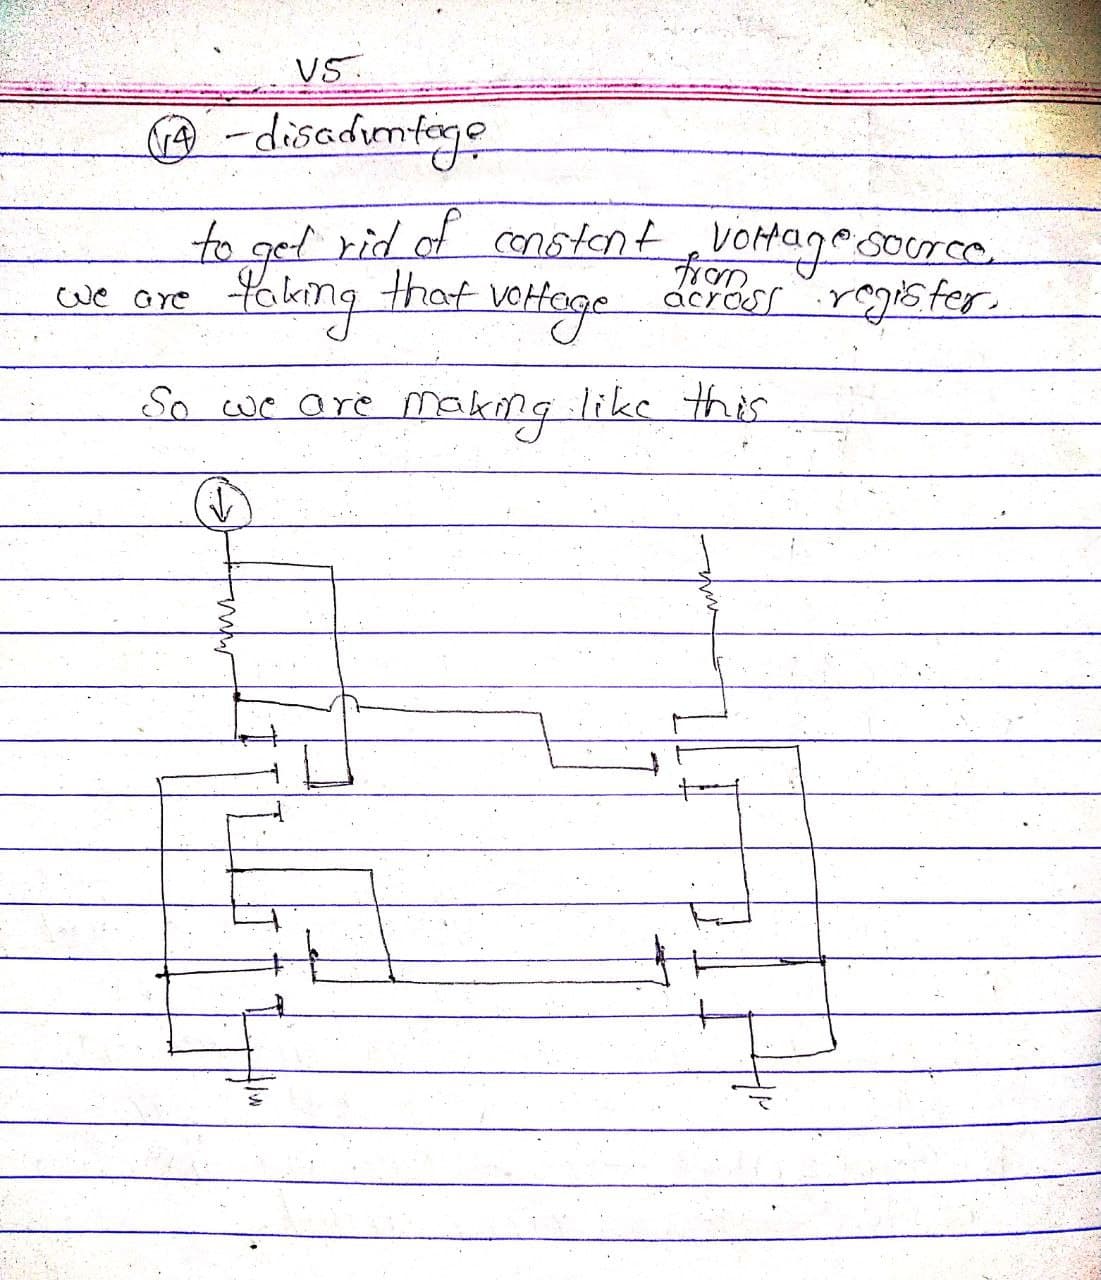 V5.
V4 - disadvntage
to get rid of constent voltage source
we are taking that voltage from across register.
So we are making like this